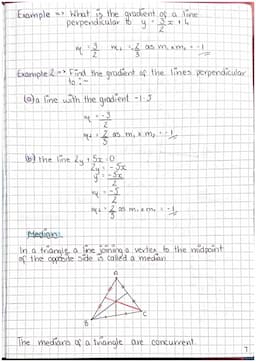 Example => What is the gradient of a line
perpendicular to y = 3/2 x + 4
m₁ = 3/2 m₂ = -2/3 as m₁ x m₂ = -1
Example 2 => Find the gradient of the lines perpendicular
to :-
(a) a line with the gradient -1.5
m₁ = -3/2
m₂ = 2/3 as m₁ x m₂ = -1
(b) the line 2y + 5x = 0
2y = -5x
y = -5x/2
m₁ = -5/2
m₂ = 2/5 as m₁ x m₂ = -1
Medians:
In a triangle a line joining a vertex to the midpoint
of the opposite side is called a median
A
B C
The medians of a triangle are concurrent.
7